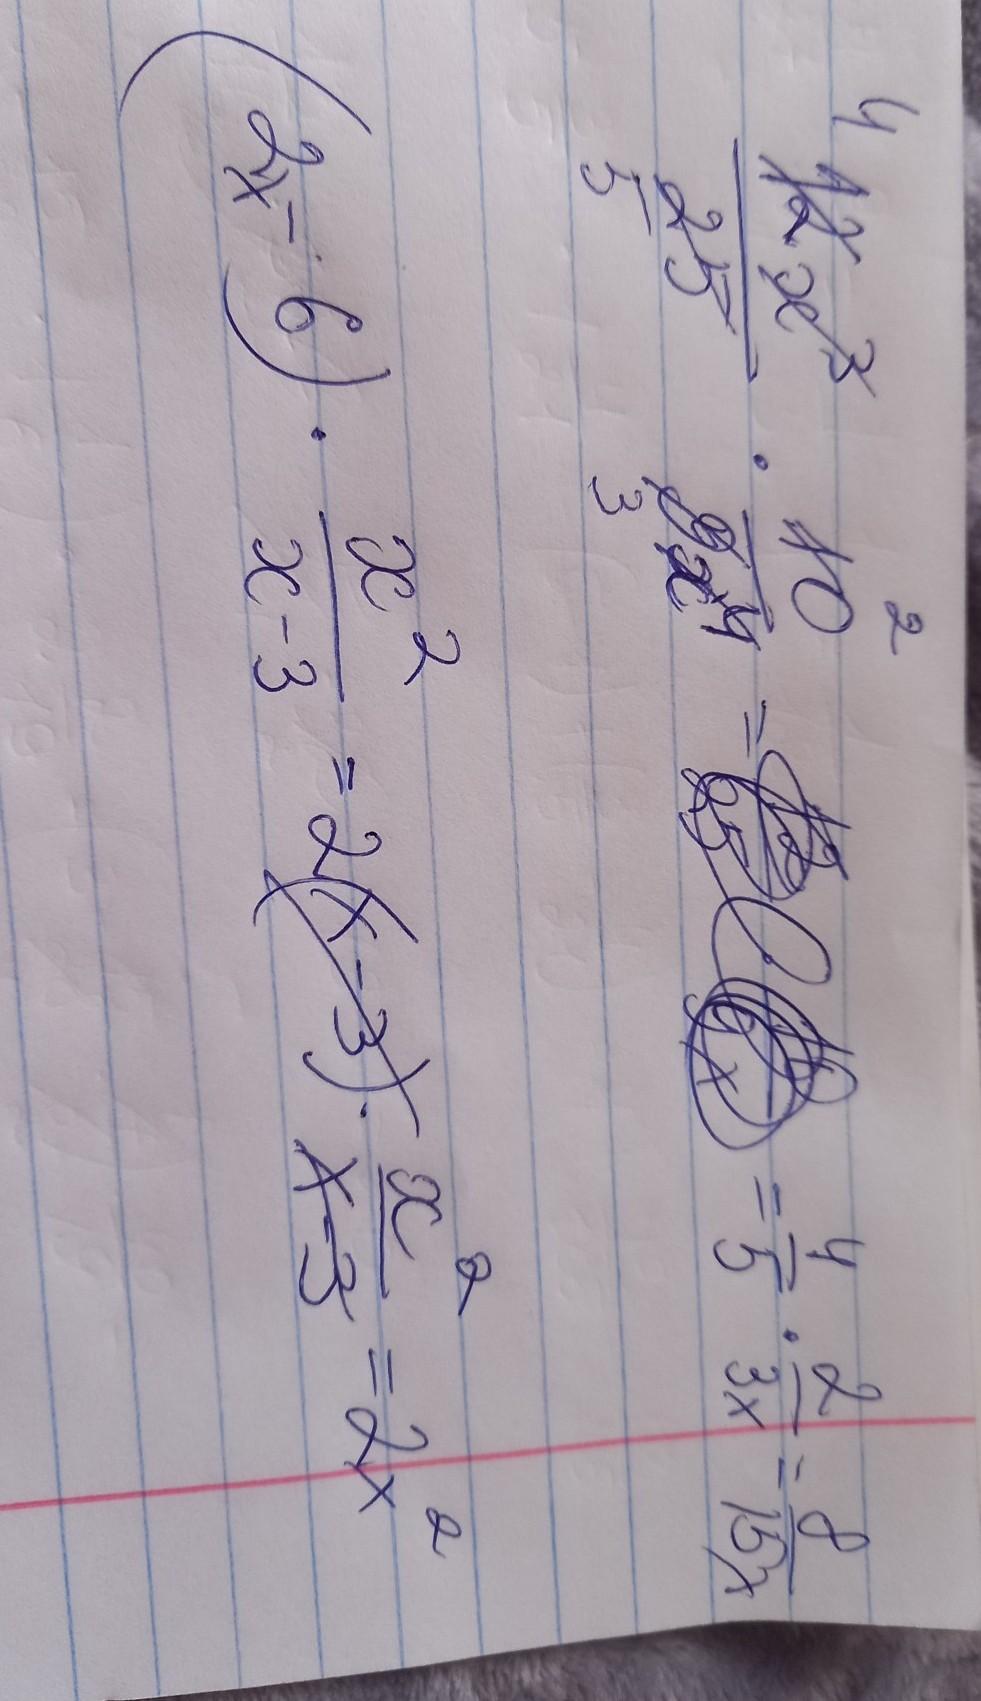 4 12x³/25 5 · 10 2/9x⁴ 3 = = 4/5 · 2/3x = 8/15x
(2x - 6) · x²/x - 3 = 2(x - 3) · x²/x - 3 = 2x²